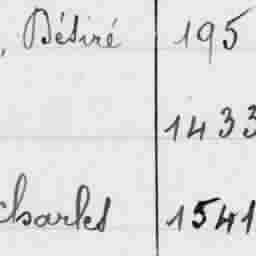 , Désiré 195
1433
charles 1541